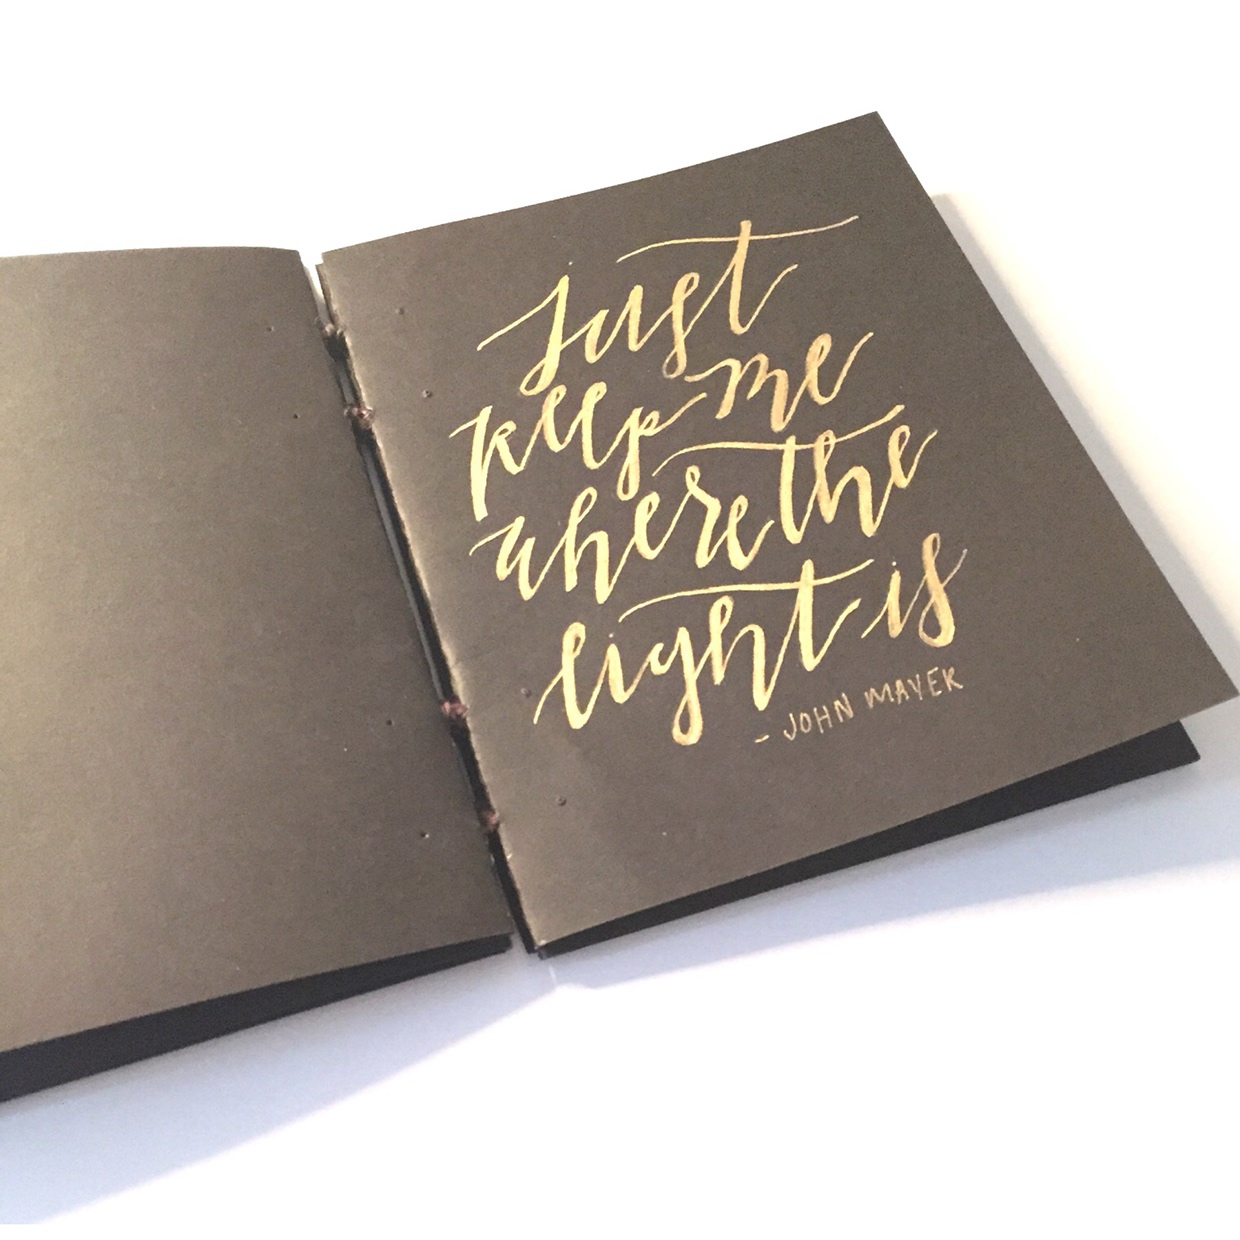 Just
keep me
where the
light is
- JOHN MAYER